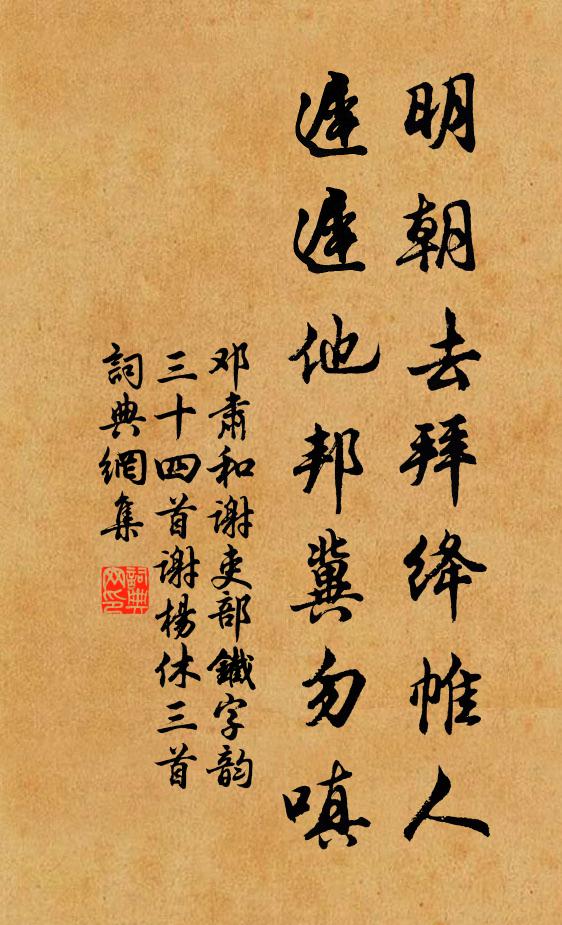 明朝去拜绛帷人
遲遲他邦冀勿嗔
邓肅和谢吏部鐵字韵
三十四首谢楊休三首
詞典網集
詞典网印